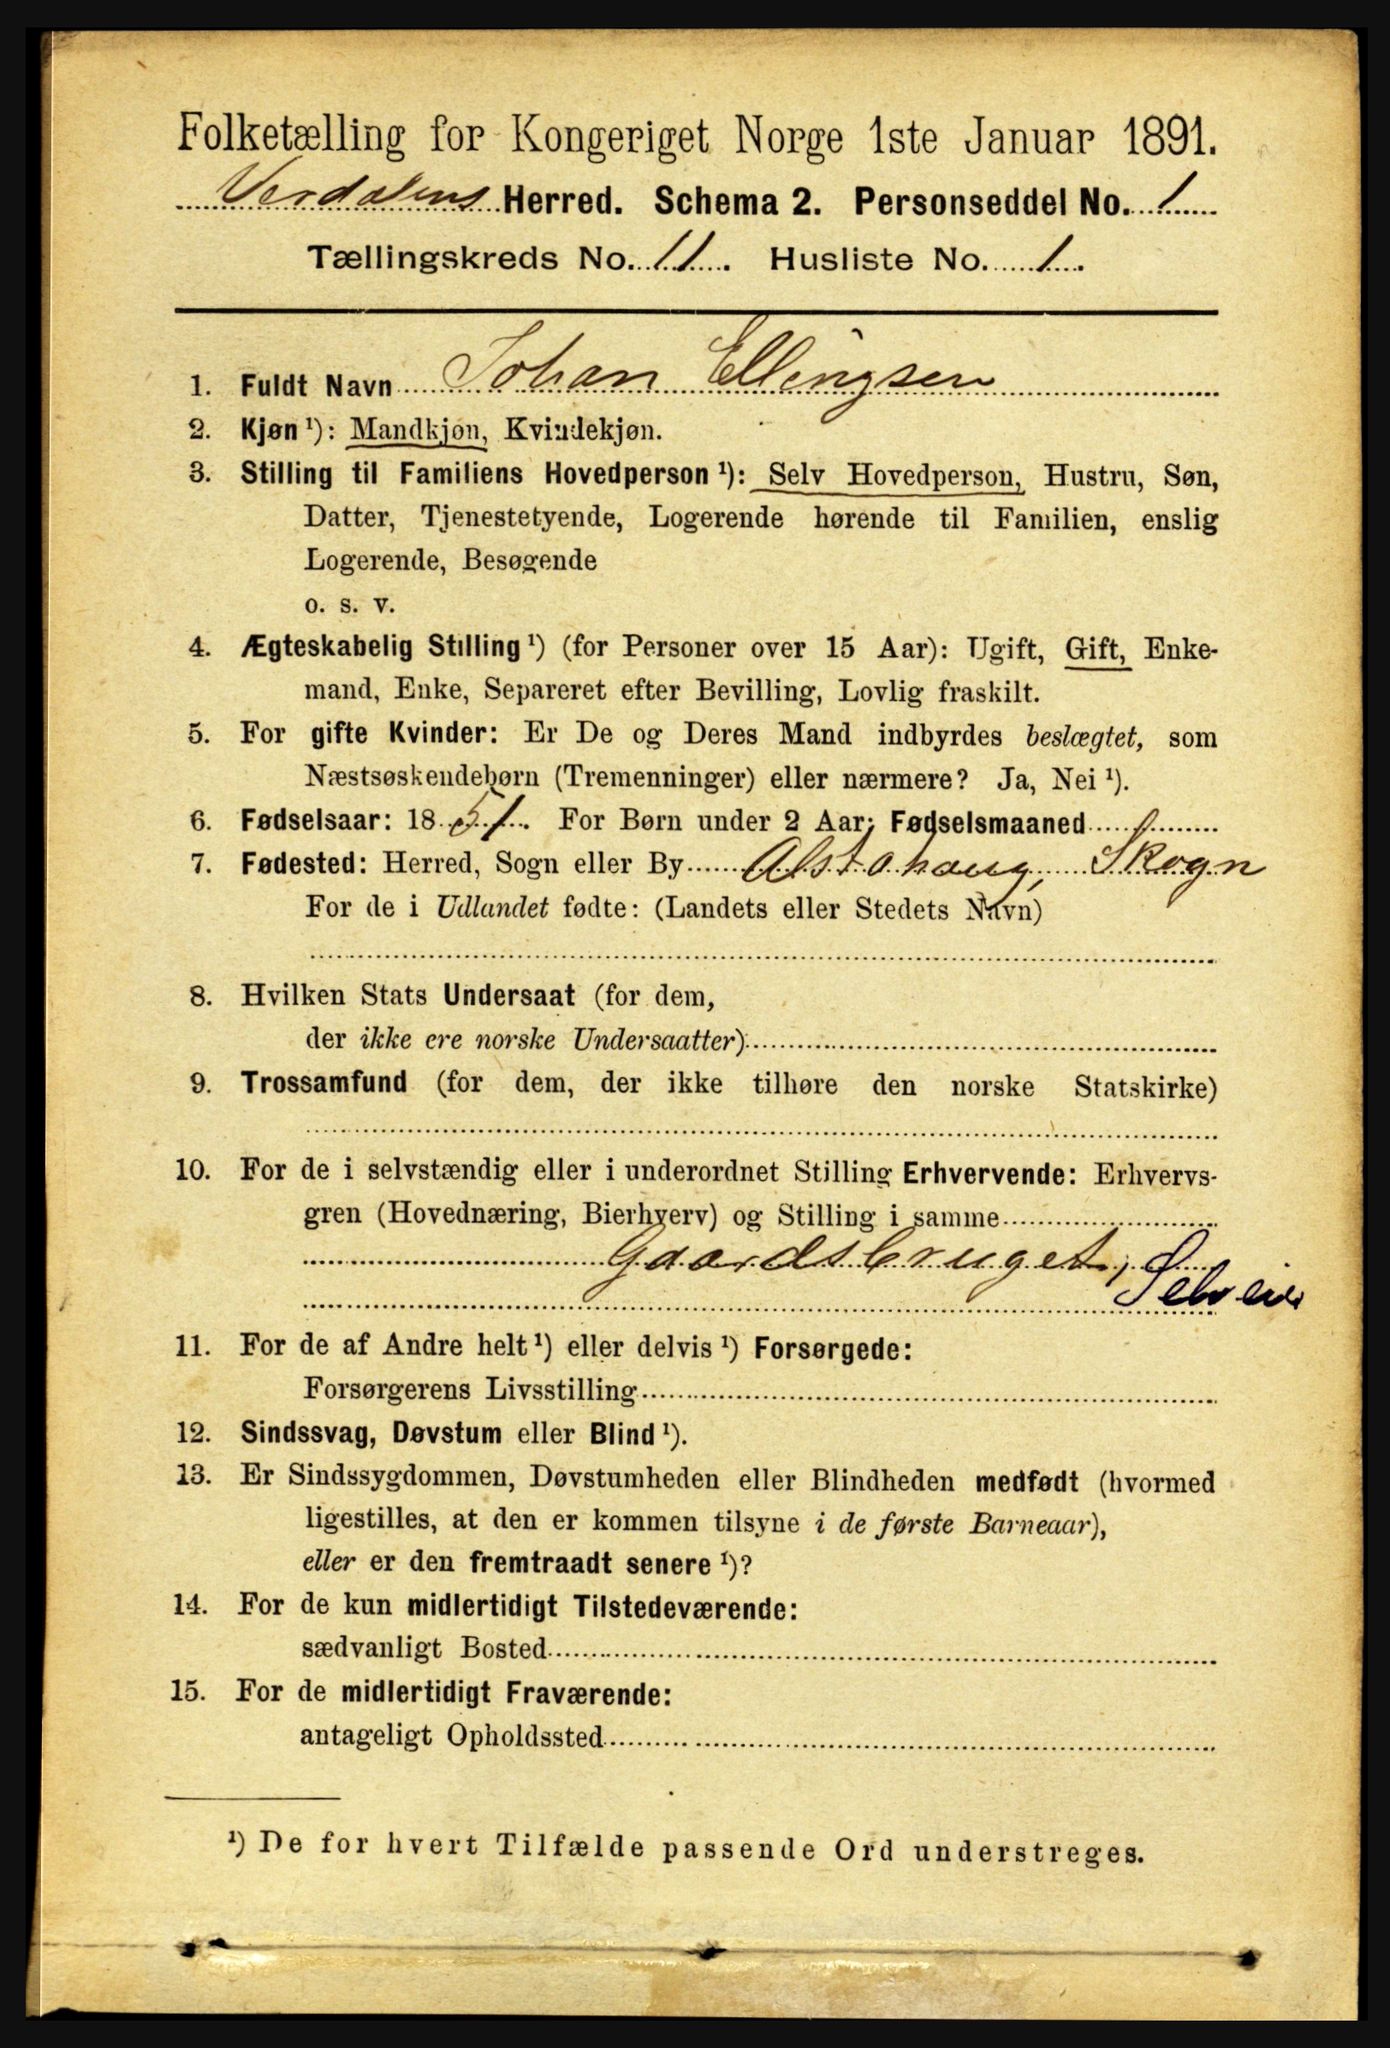 Folketælling for Kongeriget Norge 1ste Januar 1891.
Verdalens Herred. Schema 2. Personseddel No. 1
Tællingskreds No. 11. Husliste No. 1.
1. Fuldt Navn Johan Ellingsen
2. Kjøn ¹): Mandkjøn, Kvindekjøn.
3. Stilling til Familiens Hovedperson ¹): Selv Hovedperson, Hustru, Søn,
Datter, Tjenestetyende, Logerende hørende til Familien, enslig
Logerende, Besøgende
o. s. v.
4. Ægteskabelig Stilling ¹) (for Personer over 15 Aar): Ugift, Gift, Enke-
mand, Enke, Separeret efter Bevilling, Lovlig fraskilt.
5. For gifte Kvinder: Er De og Deres Mand indbyrdes beslægtet, som
Næstsøskendebørn (Tremenninger) eller nærmere? Ja, Nei ¹).
6. Fødselsaar: 1851. For Børn under 2 Aar: Fødselsmaaned
7. Fødested: Herred, Sogn eller By Alstahaug, Skogn
For de i Udlandet fødte: (Landets eller Stedets Navn)
8. Hvilken Stats Undersaat (for dem,
der ikke ere norske Undersaatter)
9. Trossamfund (for dem, der ikke tilhøre den norske Statskirke)
10. For de i selvstændig eller i underordnet Stilling Erhvervende: Erhvervs-
gren (Hovednæring, Bierhverv) og Stilling i samme
Gaardsbruget, Selveier
11. For de af Andre helt ¹) eller delvis ¹) Forsørgede:
Forsørgerens Livsstilling
12. Sindssvag, Døvstum eller Blind ¹).
13. Er Sindssygdommen, Døvstumheden eller Blindheden medfødt (hvormed
ligestilles, at den er kommen tilsyne i de første Barneaar),
eller er den fremtraadt senere ¹)?
14. For de kun midlertidigt Tilstedeværende:
sædvanligt Bosted
15. For de midlertidigt Fraværende:
antageligt Opholdssted
¹) De for hvert Tilfælde passende Ord understreges.